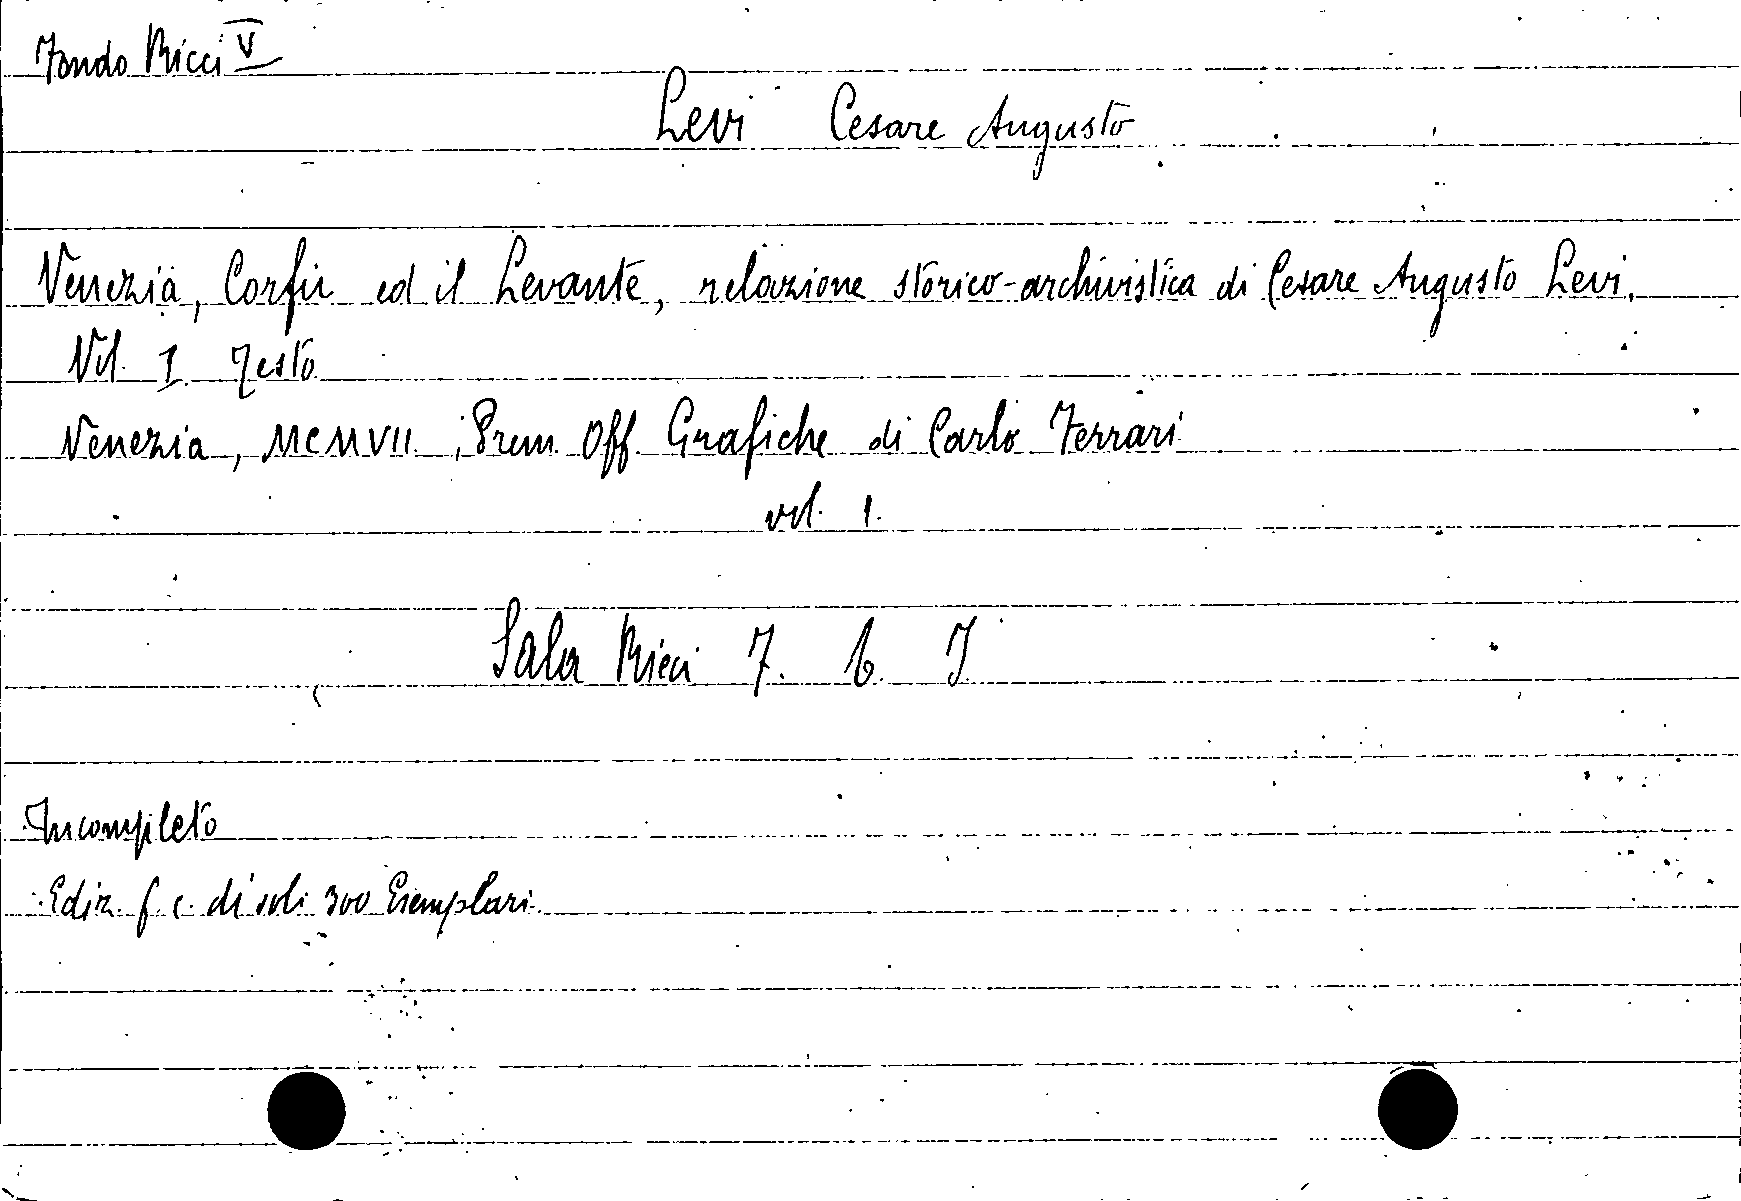 Fondo Ricci V
Levi Cesare Augusto
Venezia, Corfù ed il Levante, relazione storico-archivistica di Cesare Augusto Levi.
Vol. I Testo
Venezia, MCMVII, Prem. Off. Grafiche di Carlo Ferrari
vol. 1.
Sala Ricci 7. 6.
Incompleto
Ediz. f. c. di soli 300 Esemplari.